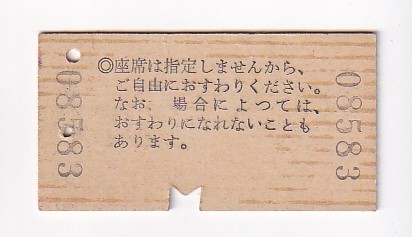 ◎座席は指定しませんから、
ご自由におすわりください。
なお、場合によつては、
おすわりになれないことも
あります。
08583
08583